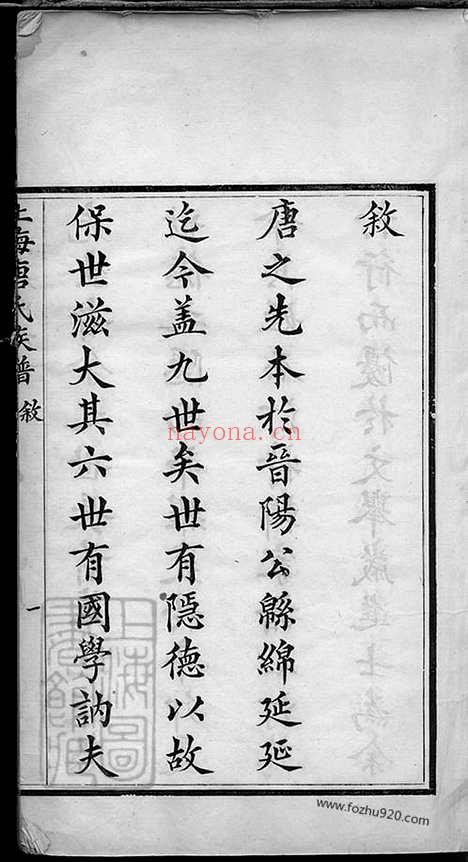 敘
唐之先本於晉陽公緜綿延延
迄今盖九世矣世有隱德以故
保世滋大其六世有國學訥夫
上海唐氏族譜 敘 一
nayona.cn
www.fozhu920.com